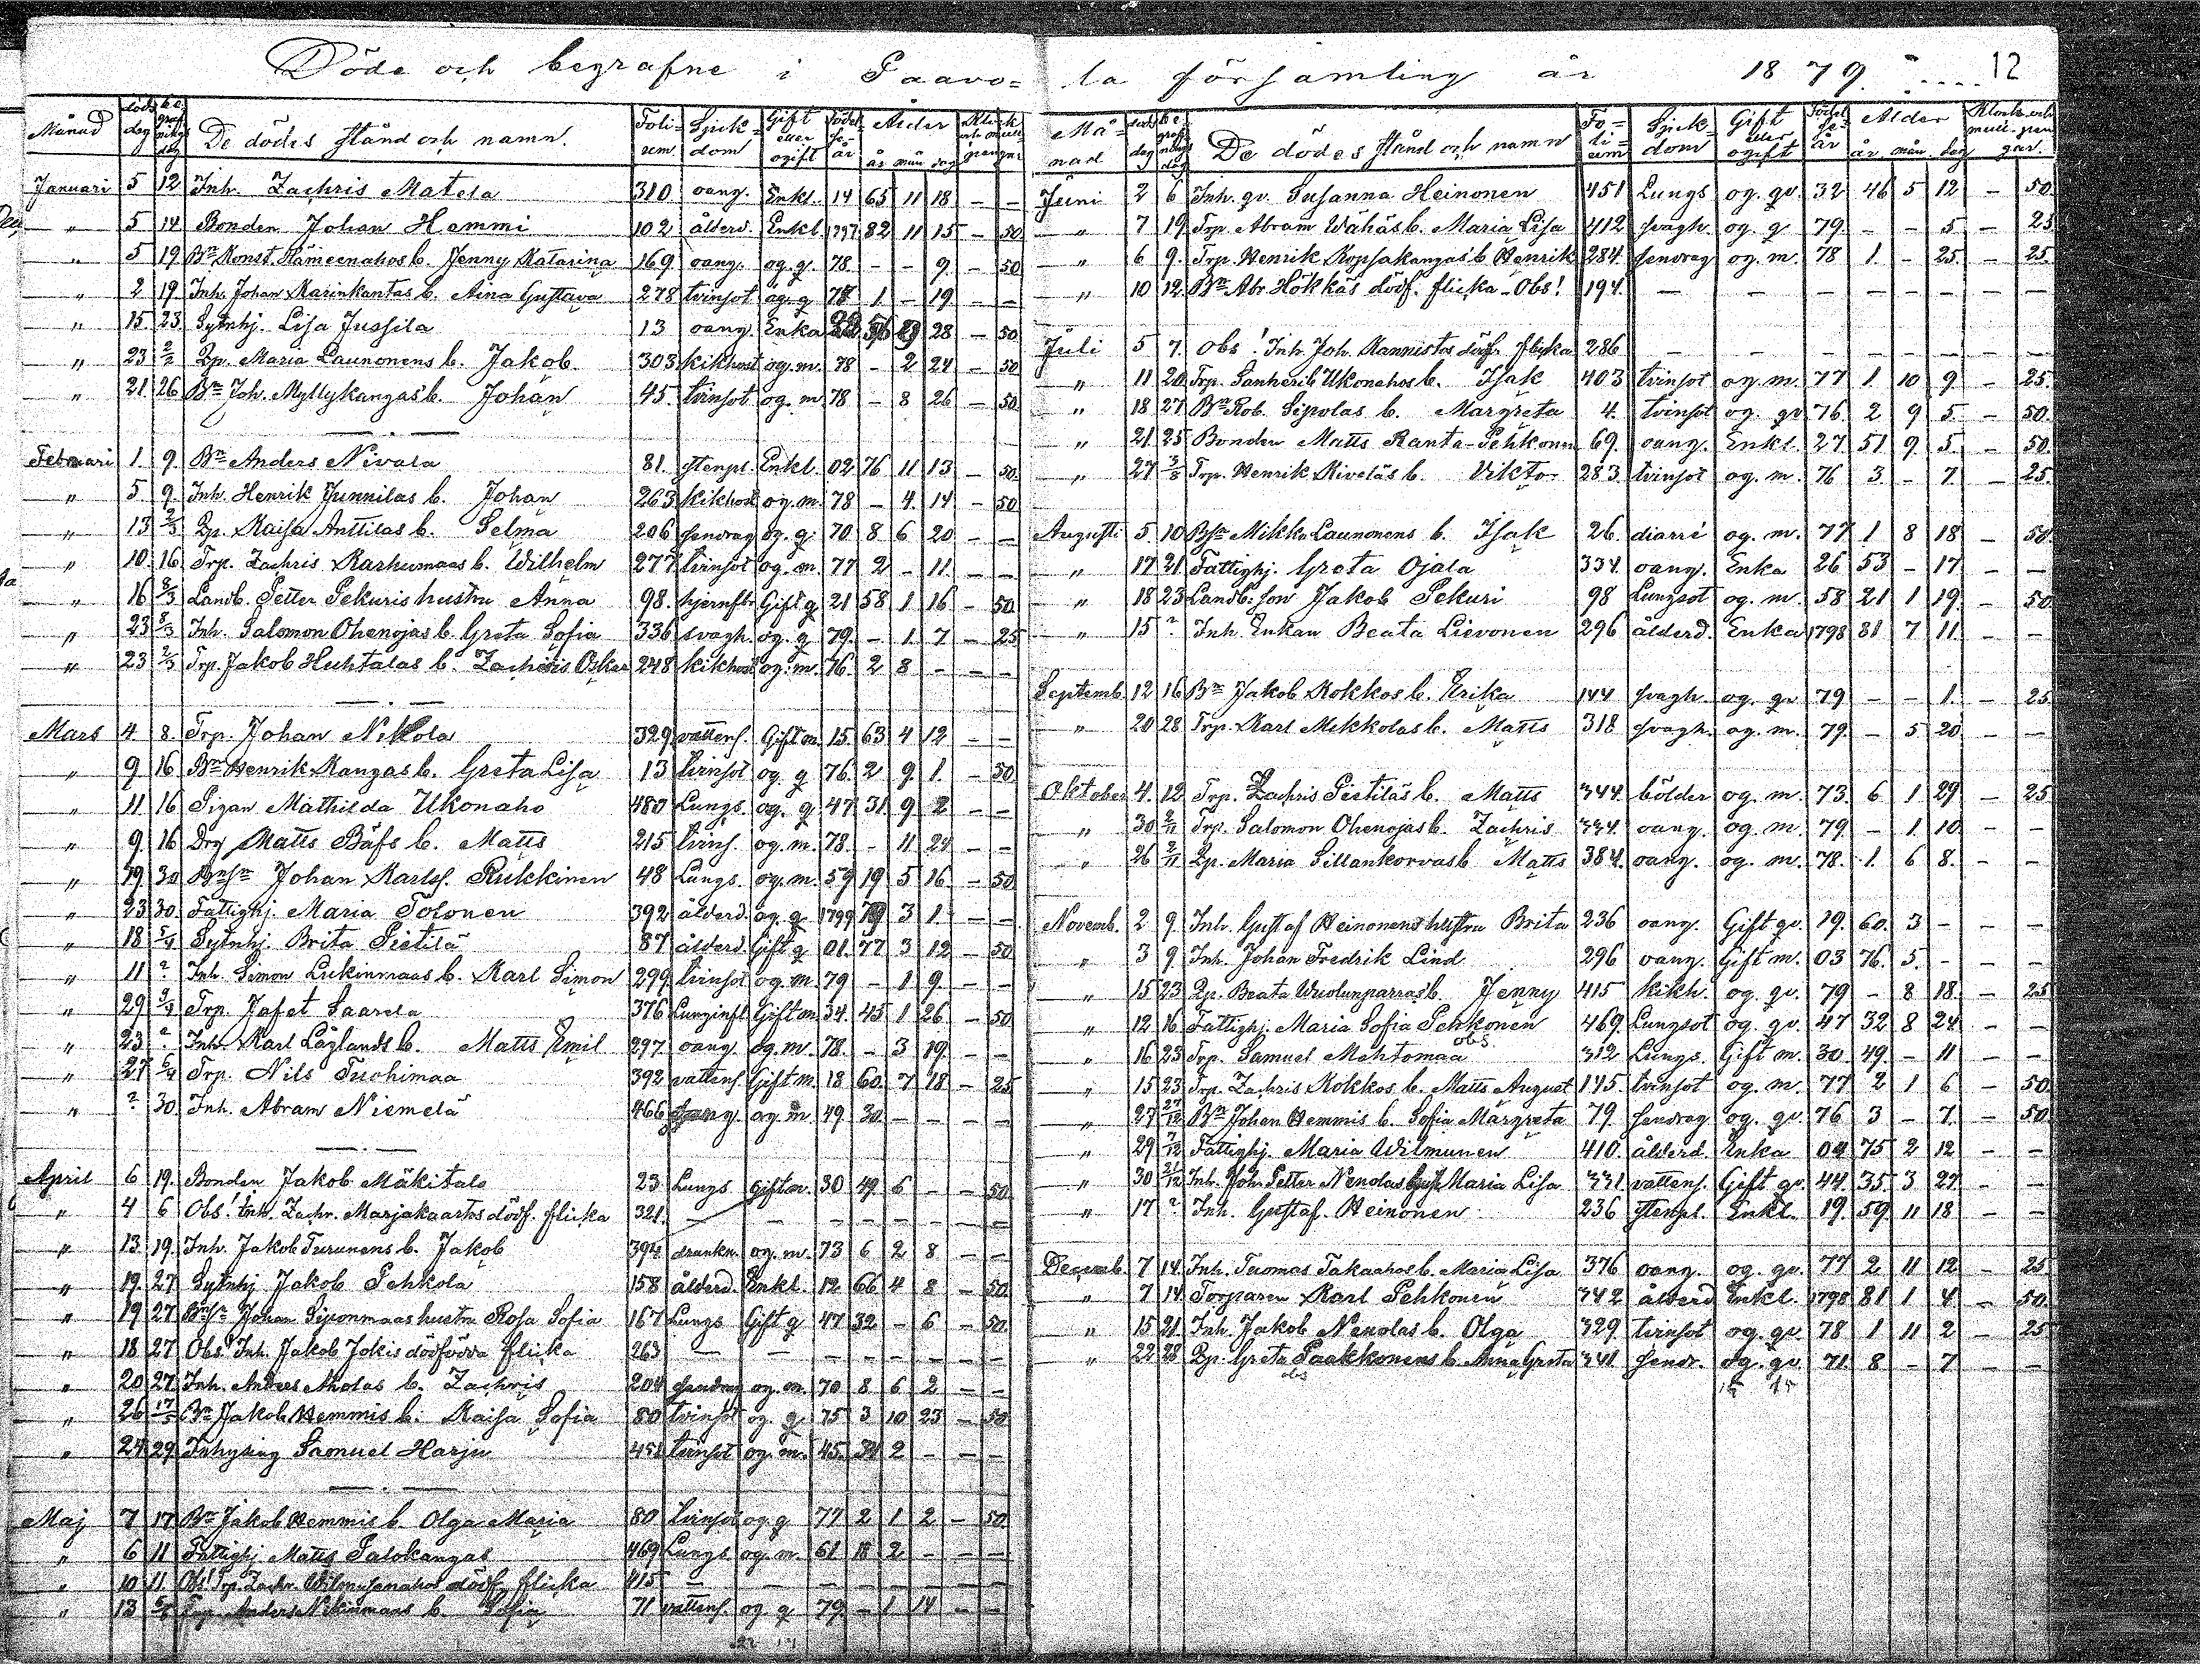 Döde och begrafne i Paavo-
Månad
döds dag
be grafnings dag
De dödes stånd och namn.
Foli- um
Sjuk- dom
Gift eller ogift
Födelse år
Ålder
år mån dag
Januari 5 12 Inh. Zachris Matela 310 oang. Enkl. 14 65 11 18 - -
" 5 14 Bonden Johan Hemmi 102 ålderd. Enkl. 1797 82 11 15 - 50
" 5 19 Bn Konst. Hämeenahos b. Jenny Katarina 169 oang. og. q. 78 - - 9 - 50
" 2 19 Inh. Johan Karinkantas b. Aina Gustava 278 tvinsot og. q 78 1 - 19 - -
" 15 23 Sytnhj. Lisa Jussila 13 oang. Enka 28 - 50
" 23 2/2 Pp. Maria Launonens b. Jakob 303 kikhost og. m. 78 - 2 24 - 50
" 21 26 Bn Joh. Myllykangas b. Johan 45. tvinsot og. m 78 - 8 26 - 50
Februari 1 9. Bn Anders Nivala 81. stenpl. Enkl. 02 76 11 13 - 50
" 5. 9. Inh. Henrik Junnilas b. Johan 263 kikhost og. m. 78 - 4. 14 - 50
" 13 2/3 Pp. Kaisa Anttilas b. Selma 206 sendrag og. q. 70 8 6 20 - -
" 10. 16 Trp. Zachris Karhumaas b. Wilhelm 277 tvinsot og. m. 77 2 - 11 - -
" 16 8/3 Landb. Petter Pekuris hustru Anna 98. hjernfb. Gift q 21 58 1 16 - 50
" 23 8/3 Inh. Salomon Ohenojas b. Greta Sofia 336 svagh. og. q 79. - 1. 7 - 25
" 23 2/3 Trp. Jakob Huhtalas b. Zachris Oskar 248 kikhost og. m. 76. 2 8 - - -
Mars 4 8. Trp. Johan Nikola 329 vattens. Gift m. 15. 63 4 12 - -
" 9 16 Bn Henrik Kangas b. Greta Lisa 13 tvinsot og. q 76. 2 9. 1. - 50
" 11 16 Pigan Mathilda Ukonaho 480 Lungs. og. q. 47 31. 9 2 - -
" 9. 16 Drg Matts Båfs b. Matts 215 tvins. og. m. 78. - 11 24 - -
" 19 30 Bnsn Johan Karlss. Rukkinen 48 Lungs. og. m. 59 19 5 16. - 50
" 23 30 Fattighj. Maria Tolonen 392 ålderd. og. q 1799 79 3 1. - -
" 18 5/4 Sytnhj. Brita Pietilä 87 ålderd. Gift q 01. 77 3 12 - 50
" 11 ? Inh. Simon Lukinmaas b. Karl Simon 299 tvinsot og. m 79 - 1 9. - -
" 29 9/4 Trp. Jafet Saarela 376 Lunginfl. Gift m. 34. 45 1 26 - 50
" 23 ? Inh. Karl Låglands b. Matts Emil 297 oang og. m. 78. - 3 19. - -
" 27 6/4 Trp. Nils Tuohimaa 392 vattens. Gift m. 18 60. 7 18 - 25
" ? 30 Inh. Abram Niemelä 466 og. m 49 30 - - - -
April 6 19. Bonden Jakob Mäkitalo 23 Lungs gift m. 30 49. 6 - - 50
" 4 6 Obs! Inh. Zachr. Marjakaartos dödf. flicka 321. - - - - - - - -
" 13 19. Inh. Jakob Turunens b. Jakob 394 drunkn. og. m. 73 6 2 8 - -
" 19. 27 Sytnhj Jakob Pehkola 158 ålderd. Enkl. 12 66 4 8 - 50
" 19 27 Bnsn Johan Siponmaas hustru Rosa Sofia 167 Lungs Gift q 47 32 - 6 - 50
" 18 27 Obs! Inh. Jakob Jokis dödfödda flicka 263 - - - - - - - -
" 20 27 Inh. Anders Aholas b. Zachris 204 sendrag og. m. 70 8 6 2 - -
" 26 17/5 Bn Jakob Hemmis b. Kaisa Sofia 80 tvinsot og. q 75 3 10 23 - 50
" 24 29. Inhysing Samuel Harju 451 tvinsot og. m. 45. 34 2 - - -
Maj 7 17. Bn Jakob Hemmis b. Olga Maria 80 tvinsot og. q 77 2 1 2 - 50
" 6 11 Fattighj Matts Palokangas 469 Lungs og. m. 61 18 2 - - -
" 10 11. Obs! Trp. Zachr. Wilmusenahos dödf. flicka 415 - - - - - - - -
" 13 Trp. Anders Nikinmaas b. Sofia 71 vattens. og q 79. - 1 14 - -
la församling år 1879.
12
Må- nad
döds dag
be grafnings dag
De dödes stånd och namn
Fo- li- um
Sjuk- dom
Gift eller ogift
Födelse år
Ålder
år. mån. dag
Klock. och mull. pen gar.
Juni 2 6 Inh. qv. Susanna Heinonen 451 Lungs og. qv. 32 46 5 12 - 50.
" 7 19. Trp. Abram Wähäs b. Maria Lisa 412 svagh. og. q 79. - - 5 - 25
" 6 9. Trp. Henrik Kopsakangas b Henrik 284. sendrag og. m. 78 1. - 25. - 25.
" 10 12. Bn Abr Hökkäs dödf. flicka - Obs! 194. - - - - - - - -
Juli 5 7. Obs! Inh. Joh. Kannistos dödf. flicka 286 - - - - - - - -
" 11 20. Trp. Sanherib Ukonahos b. Isak 403 tvinsot og. m. 77 1. 10 9. - 25.
" 18 27 Bn Rob. Sipolas b. Margreta 4. tvinsot og. qv 76. 2 9 5. - 50.
" 21. 25. Bonden Matts Ranta-Pehkonen 69. oang. Enkl. 27. 51 9 5. - 50.
" 27 3/8 Trp. Henrik Kiveläs b. Viktor 283. tvinsot og. m. 76 3. - 7. - 25.
Augusti 5. 10 Bsn Mikko Launonens b. Isak 26. diarré og. m. 77 1 8 18 - 50.
" 17 21 Fattighj. Greta Ojala 334. oang. Enka 26 53 - 17 - -
" 18 23 Landb. son Jakob Pekuri 98 Lungsot og. m. 58 21 1 19. - 50
" 15 ? Inh. Enkan Beata Lievonen 296 ålderd. Enka 1798 81 7 11. - -
Septemb. 12 16 Bn Jakob Kokkos b. Erika 144 svagh. og. qv 79 - - 1. - 25
" 20 28 Trp. Karl Mikkolas b. Matts 318 svagh. og. m. 79. - 5 20 - -
Oktober 4. 12 Trp. Zachris Pietiläs b. Matts 344. bölder og. m. 73. 6 1 29 - 25
" 30 2/11 Trp. Salomon Ohenojas b. Zachris 334. oang. og. m. 79. - 1. 10. - -
" 26 2/11 Pp. Maria Sillankorvas b Matts 384. oang. og. m. 78. 1. 6 8. - -
Novemb. 2 9. Inh. Gustaf Heinonens hustru Brita 236 oang. Gift qv. 19. 60. 3 - - -
" 3 9. Inh. Johan Fredrik Lind 296 oang. Gift m. 03 76. 5. - - -
" 15 23 Pp. Beata Wuolunparras b. Jenny 415 kikh. og. qv. 79 - 8 18. - 25
" 12 16 Fattighj. Maria Sofia Pehkonen 469. Lungsot og. qv. 47 32 8 24 - -
" 16 23 Trp. Samuel Mehtomaa obs 312 Lungs. Gift m. 30. 49. - 11 - -
" 15 23 Trp. Zachris Kokkos b. Matts August 145 tvinsot og. m. 77 2 1 6 - 50.
" 27 27/12 Bn Johan Hemmis b. Sofia Margreta 79 sendrag og. qv. 76 3 - 7. - 50.
" 29 7/12 Fattighj. Maria Wilmunen 410. ålderd. Enka 04 75 2 12 - -
" 30 21/12 Inh. Joh. Petter Nenolas hust Maria Lisa 331. vattens. Gift qv. 44. 35. 3 27. - -
" 17 ? Inh. Gustaf. Heinonen 236 stenpl. Enkl. 19. 59. 11 18 - -
Decemb. 7 14. Inh. Tuomas Takaahos b. Maria Lisa 376 oang. og. qv. 77 2 11 12 - 25.
" 7 14. Torparen Karl Pehkonen 342 ålderd Enkl. 1798 81 1 4 - 50.
" 15 21. Inh. Jakob Nenolas b. Olga 329. tvinsot og. qv. 78 1 11 2 - 25.
" 22 28 Pp. Greta Paakkonens b. Anna Greta 341. sendr. og. qv. 71. 8 - 7 - -
obs